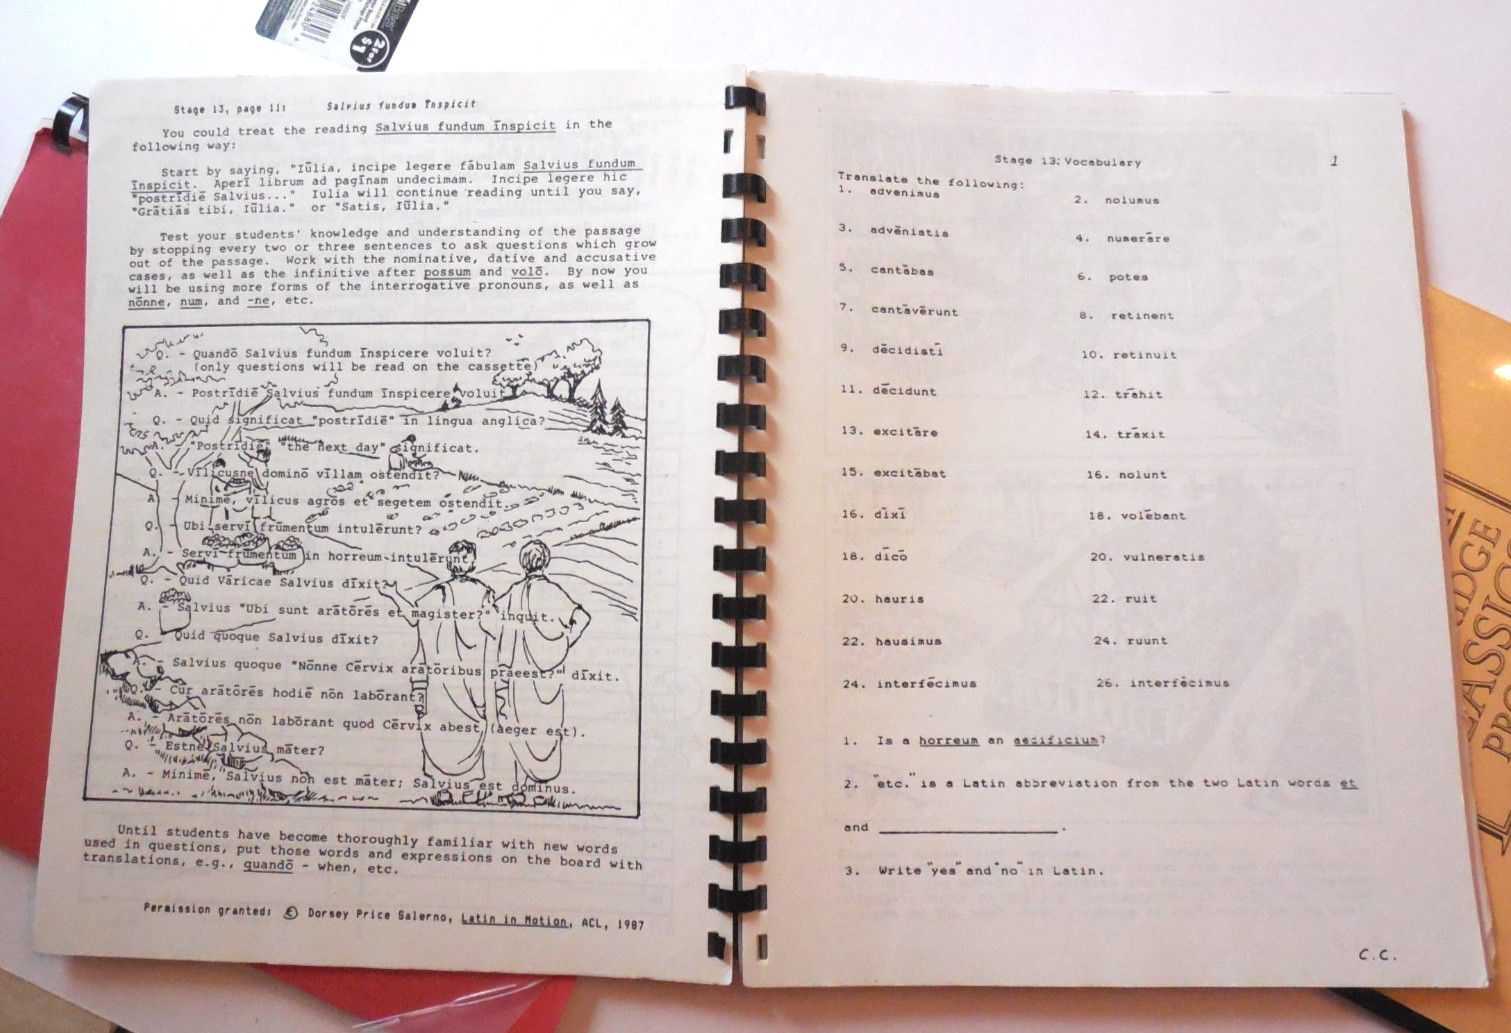 2 for
$1
Stage 13, page 11: Salvius fundum Īnspicit
You could treat the reading Salvius fundum Īnspicit in the
following way:
Start by saying, "Iūlia, incipe legere fābulam Salvius fundum
Inspicit. Aperī librum ad pagīnam undecimam. Incipe legere hic
"postrīdiē Salvius..." Iulia will continue reading until you say,
"Grātiās tibi, Iūlia." or "Satis, Iūlia."
Test your students' knowledge and understanding of the passage
by stopping every two or three sentences to ask questions which grow
out of the passage. Work with the nominative, dative and accusative
cases, as well as the infinitive after possum and volō. By now you
will be using more forms of the interrogative pronouns, as well as
nōnne, num, and -ne, etc.
Q. - Quandō Salvius fundum Īnspicere voluit?
(only questions will be read on the cassette)
A. - Postrīdiē Salvius fundum Inspicere voluit
Q. - Quid significat "postrīdiē" in lingua anglica?
A. - "Postrīdiē" "the next day" significat.
Q. - Vīlicusne dominō vīllam ostendit?
A. - Minimē, vīlicus agrōs et segetem ostendit.
Q. - Ubi servī frūmentum intulērunt?
A. - Servī frūmentum in horreum intulērunt.
Q. - Quid Vāricae Salvius dīxit?
A. - Salvius "Ubi sunt arātōrēs et magister?" inquit.
Q. Quid quoque Salvius dīxit?
Salvius quoque "Nōnne Cērvix arātōribus praeest?" dīxit.
Q. - Cūr arātōrēs hodiē nōn labōrant?
A. - Arātōrēs nōn labōrant quod Cērvix abest (aeger est).
Q. - Estne Salvius māter?
A. - Minimē, Salvius nōn est māter; Salvius est dominus.
Until students have become thoroughly familiar with new words
used in questions, put those words and expressions on the board with
translations, e.g., quandō - when, etc.
Permission granted: © Dorsey Price Salerno, Latin in Motion, ACL, 1987
Stage 13: Vocabulary 1
Translate the following:
1. advenimus 2. nolumus
3. advēniatis 4. numerāre
5. cantābas 6. potes
7. cantāvērunt 8. retinent
9. dēcidistī 10. retinuit
11. dēcidunt 12. trahit
13. excitāre 14. trāxit
15. excitābat 16. nolunt
16. dīxī 18. volēbant
18. dīcō 20. vulneratis
20. hauris 22. ruit
22. hausimus 24. ruunt
24. interfēcimus 26. interfēcimus
1. Is a horreum an aedificium?
2. "etc." is a Latin abbreviation from the two Latin words et
and ____________.
3. Write "yes" and "no" in Latin.
C.C.